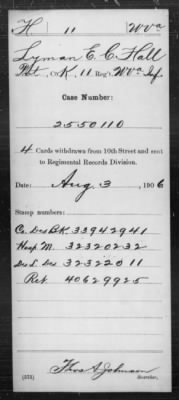 H 11 W Va
Lyman E. C. Hall
Pvt., Co. K, 11 Reg't. W Va Inf.
Case Number:
2550110
4 Cards withdrawn from 10th Street and sent
to Regimental Records Division.
Date: Aug. 3, 1906
Stamp numbers:
Co. Des Bk. 33942941
Hosp M. 32320232
Des. L. Des 32322011
Ret. 40629925
Thos A Johnson
(573) Searcher.